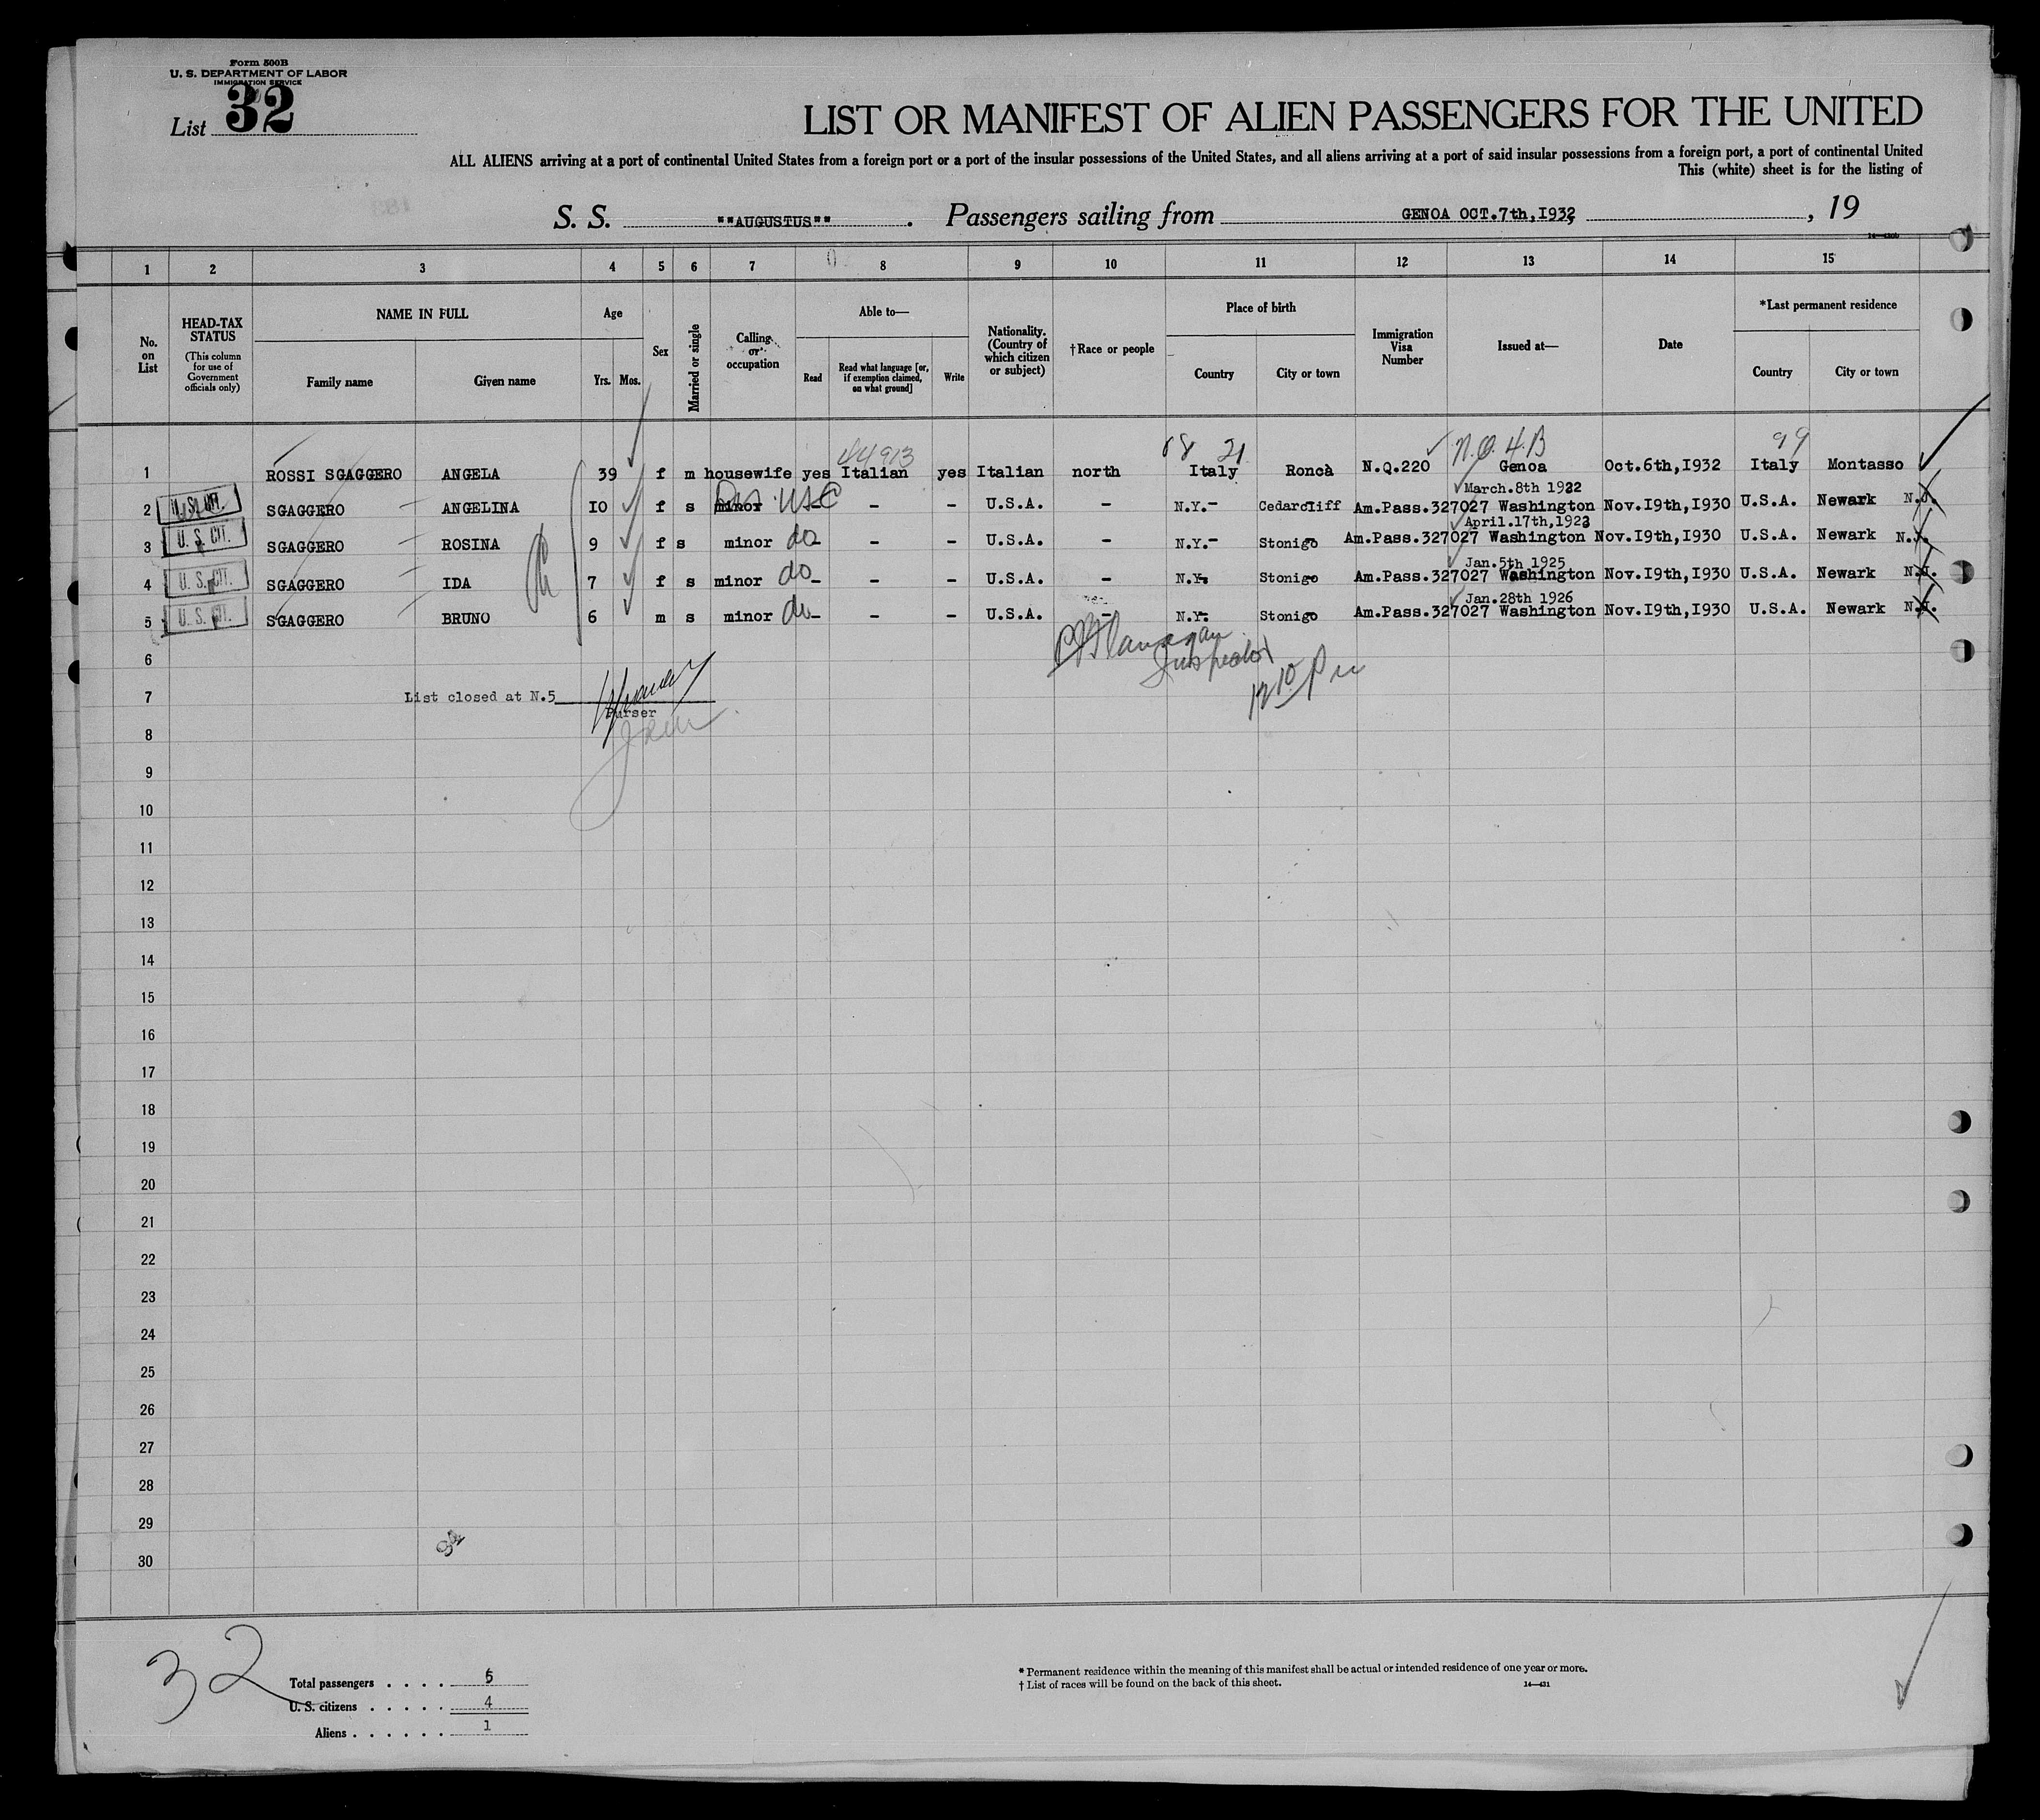 Form 500B
U. S. DEPARTMENT OF LABOR
IMMIGRATION SERVICE
List 32
LIST OR MANIFEST OF ALIEN PASSENGERS FOR THE UNITED
ALL ALIENS arriving at a port of continental United States from a foreign port or a port of the insular possessions of the United States, and all aliens arriving at a port of said insular possessions from a foreign port, a port of continental United
This (white) sheet is for the listing of
S. S. ""AUGUSTUS"" . Passengers sailing from GENOA OCT.7th,I932 , 19
1 2 3 4 5 6 7 8 9 10 11 12 13 14 15
No. on List
HEAD-TAX STATUS (This column for use of Government officials only)
NAME IN FULL
Family name Given name
Age
Yrs. Mos.
Sex
Married or single
Calling or occupation
Able to—
Read
Read what language [or, if exemption claimed, on what ground]
Write
Nationality. (Country of which citizen or subject)
†Race or people
Place of birth
Country City or town
Immigration Visa Number
Issued at—
Date
*Last permanent residence
Country City or town
44913 68 21 N.Q. 4.B 99
1 ROSSI SGAGGERO ANGELA 39 f m housewife yes Italian yes Italian north Italy Roncà N.Q.220 Genoa Oct.6th,I932 Italy Montasso
March.8th 1922
2 U.S. CIT. SGAGGERO ANGELINA IO f s minor USC - - U.S.A. - N.Y.- Cedarcliff Am.Pass.327027 Washington Nov.I9th,I930 U.S.A. Newark N.J.
April.17th,1923
3 U.S. CIT. SGAGGERO ROSINA 9 f s minor do - - - U.S.A. - N.Y.- Stonigo Am.Pass.327027 Washington Nov.I9th,I930 U.S.A. Newark N.J.
Jan.5th 1925
4 U.S. CIT. SGAGGERO IDA 7 f s minor do - - - U.S.A. - N.Y. Stonigo Am.Pass.327027 Washington Nov.I9th,I930 U.S.A. Newark N.J.
Jan.28th 1926
5 U.S. CIT. SGAGGERO BRUNO 6 m s minor do - - - U.S.A. - N.Y. Stonigo Am.Pass.327027 Washington Nov.I9th,I930 U.S.A. Newark N.J.
Inspector
6
12 10 Pm
7 List closed at N.5
Purser
8
9
10
11
12
13
14
15
16
17
18
19
20
21
22
23
24
25
26
27
28
29
30
32
Total passengers . . . . 5
U. S. citizens . . . . . 4
Aliens . . . . . . 1
* Permanent residence within the meaning of this manifest shall be actual or intended residence of one year or more.
† List of races will be found on the back of this sheet.
14—431